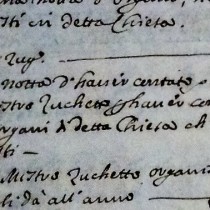 sti in detta Chiesa.
Lug.
notta d'haver contato
stro Zuchetto, & haver con
organi di detta Chiesa ch
ti —
Mistro Zuchetto organi
li dà all'anno